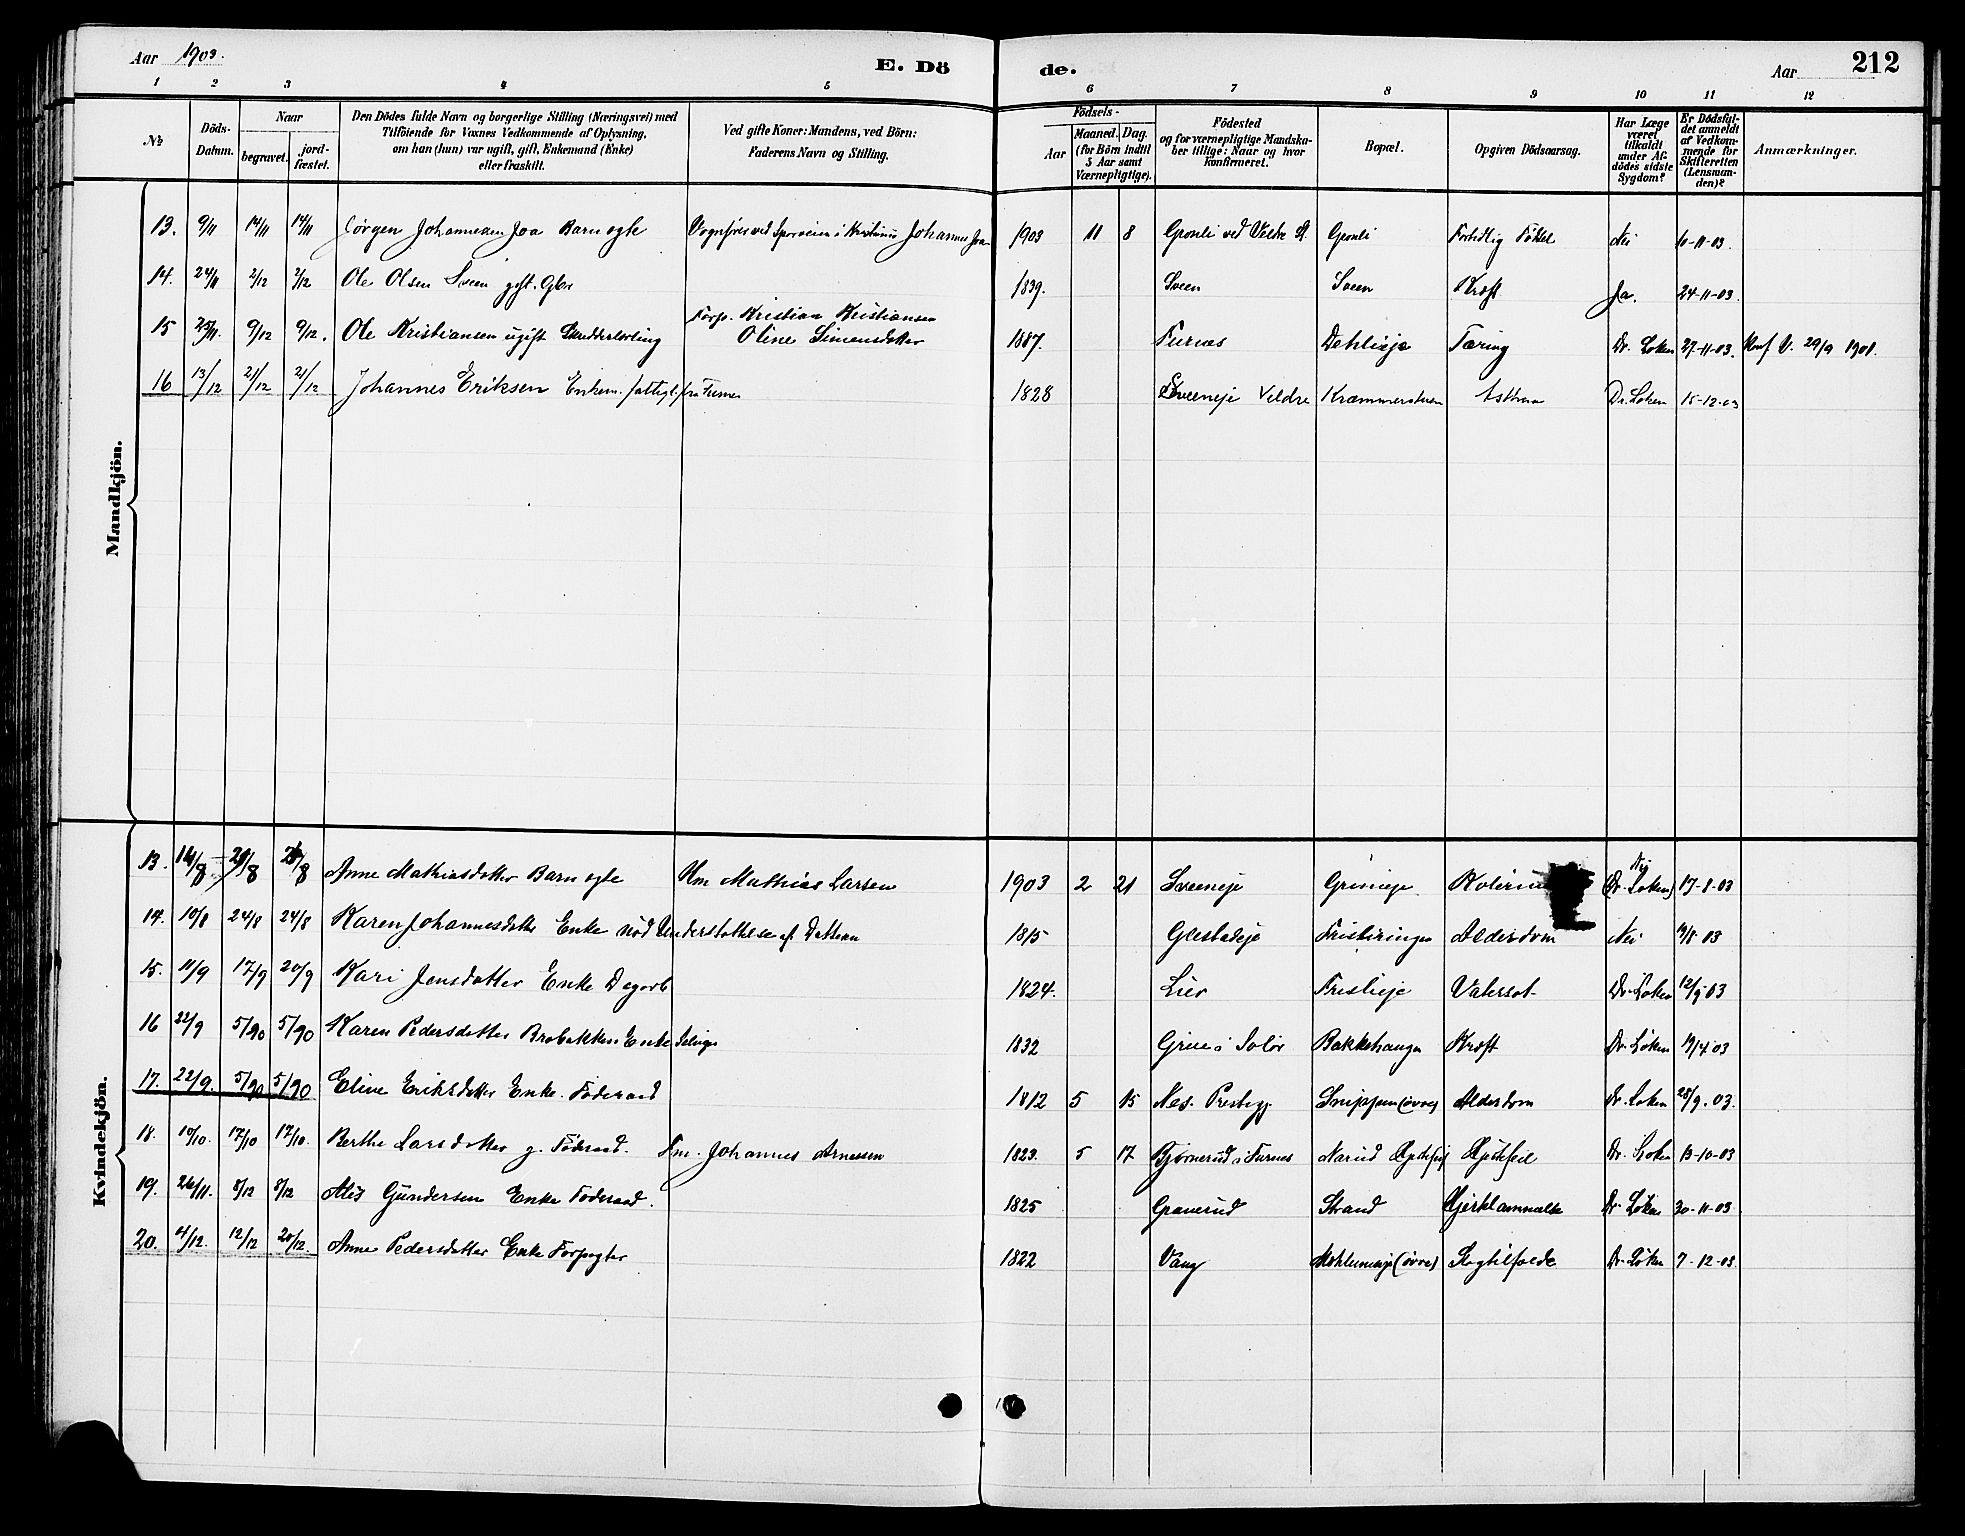 Aar 1903.
E. Dö
de.
Aar
212
1 2 3 4 5 6 7 8 9 10 11 12
№
Döds-Datum.
Naar
begravet.
jord-fæstet.
Den Dödes fulde Navn og borgerlige Stilling (Næringsvei) med
Tilföiende for Voxnes Vedkommende af Oplysning,
om han (hun) var ugift, gift, Enkemand (Enke)
eller fraskilt.
Ved gifte Koner: Mandens, ved Börn:
Faderens Navn og Stilling.
Födsels-
Aar
Maaned. Dag.
(for Börn indtil
5 Aar samt
Værnepligtige).
Födested
og for værnepligtige Mandska-
ber tillige: Naar og hvor
konfirmeret.
Bopæl.
Opgiven Dödsaarsag.
Har Læge
været
tilkaldt
under Af-
dödes sidste
Sygdom?
Er Dödsfal-
det anmeldt
af Vedkom-
mende for
Skifteretten
(Lensman-
den)?
Anmærkninger.
Mandkjön.
13. 9/11 14/11 14/11 Jörgen Johannesen Joa Barn ogte Vognförer ved Sporveien i Kristiania Johannes Joa 1903 11 8 Grönli ved Veldre St. Grönli Fortidlig Födsel Nei 10-11-03.
14. 24/11 2/12 2/12 Ole Olsen Sveen gift. Gbr 1839. Sveen Sveen Kræft Ja. 24-11-03.
15 25/11. 9/12 9/12. Ole Kristiansen ugift Skredderlærling Forp. Kristian Kristiansen
Oline Simensdatter 1887. Furnes Dehlieje Tæring Dr. Löken 27-11-03. Konf. V. 29/9 1901.
16 13/12 21/12 21/12 Johannes Eriksen Enkem. fattigl. fra Furnes 1828 Sveeneje Veldre Kræmmerstuen Asthma Dr. Löken 15-12-03
Kvindekjön.
13. 14/8 21/8 21/8 Anne Mathiasdatter Barn ogte Hm Mathias Larsen 1903 2 21 Sveeneje Grineje Kolerin Nei
(Dr. Löken) 17-8-03
14. 10/8 24/8 24/8 Karen Johannesdatter Enke nöd Understöttelse af Datteren 1815 Glestadeje Fristiringen Alderdom Nei 19/8-03
15. 11/9 17/9 20/9 Kari Jensdatter Enke Dagarb 1824. Lier Freslieje Vatersot Dr. Löken 12/9 03
16 22/9 5/90 5/90 Karen Pedersdatter Brobakken Enke 1832 Grue i Solör Bakkehaugen Kræft Dr. Löken 19/4 03
17. 22/9. 5/90 5/90 Eline Eriksdatter Enke. Föderaad 1812 5 15 Næs. Prestegj. Snippen (övre) Alderdom Dr. Löken 28/9. 03.
18. 10/10. 17/10 17/10. Berthe Larsdatter g. Föderaad. Fm. Johannes Arnessen 1823. 5 17 Björnerud i Furnes Narud Hjertefeil Dr. Löken 13-10-03
19. 26/11. 8/12 8/12 Alis Gundersen Enke Föderaad. 1825 Granerud Strand Hjertelammelse Dr. Löken 30-11-03
20. 4/12. 12/12 20/12. Anne Pedersdatter Enke Forpagter 1822 Vang Mæhlumeje (övre) Sogtilfælde Dr. Löken 7-12-03